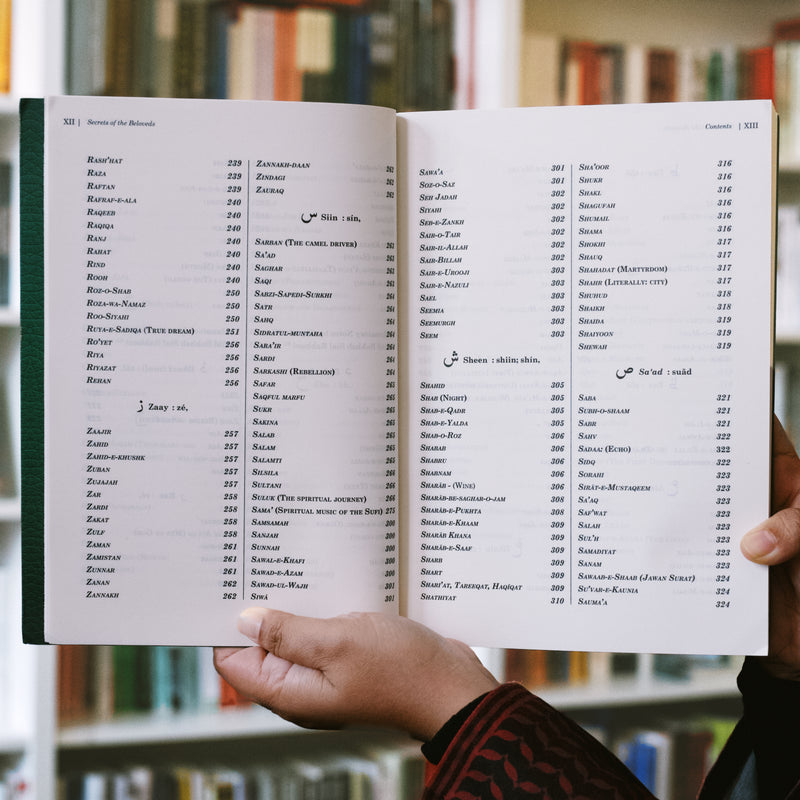 XII | Secrets of the Beloveds
Rash'hat 239
Raza 239
Raftan 239
Rafraf-e-ala 240
Raqeeb 240
Raqiqa 240
Ranj 240
Rahat 240
Rind 240
Rooh 240
Roz-o-Shab 250
Roza-wa-Namaz 250
Roo-Siyahi 250
Ruya-e-Sadiqa (True dream) 251
Ro'yet 256
Riya 256
Riyazat 256
Rehan 256
ز Zaay : zé,
Zaajir 257
Zahid 257
Zahid-e-khushk 257
Zuban 257
Zujajah 257
Zar 258
Zardi 258
Zakat 258
Zulf 258
Zaman 261
Zamistan 261
Zunnar 261
Zanan 262
Zannakh 262
Zannakh-daan 262
Zindagi 262
Zauraq 262
س Siin : sin,
Sarban (The camel driver) 263
Sa'ad 263
Saghar 263
Saqi 263
Sabzi-Sapedi-Surkhi 264
Satr 264
Sahq 264
Sidratul-muntaha 264
Saba'ir 264
Sardi 264
Sarkashi (Rebellion) 264
Safar 265
Saqful marfu 265
Sukr 265
Sakina 265
Salab 265
Salam 265
Salamti 265
Silsila 265
Sultani 266
Suluk (The spiritual journey) 266
Sama' (Spiritual music of the Sufi) 275
Samsamah 300
Sanjah 300
Sunnah 300
Sawal-e-Khafi 300
Sawad-e-Azam 300
Sawad-ul-Wajh 301
Siwā 301
Contents | XIII
Sawa'a 301
Soz-o-Saz 301
Seh Jadah 301
Siyahi 302
Seb-e-Zankh 302
Sair-o-Tair 302
Sair-il-Allah 302
Sair-Billah 302
Sair-e-Urooj 303
Sair-e-Nazuli 303
Sael 303
Seemia 303
Seemurgh 303
Seem 303
ش Sheen : shiin; shin,
Shahid 305
Shab (Night) 305
Shab-e-Qadr 305
Shab-e-Yalda 305
Shab-o-Roz 306
Shabab 306
Shabru 306
Shabnam 306
Sharāb - (Wine) 306
Sharāb-be-saghar-o-jam 308
Sharāb-e-Pukhta 308
Sharāb-e-Khaam 309
Sharāb Khana 309
Sharāb-e-Saaf 309
Sharb 309
Shart 309
Shari'at, Tareeqat, Haqiqat 309
Shathiyat 310
Sha'oor 316
Shukr 316
Shakl 316
Shagufah 316
Shumail 316
Shama 316
Shokhi 317
Shauq 317
Shahadat (Martyrdom) 317
Shahr (Literally: city) 317
Shuhud 318
Shaikh 318
Shaida 319
Shaiyoon 319
Shewah 319
ص Sa'ad : suād
Saba 321
Subh-o-shaam 321
Sabr 321
Sahv 322
Sadaa: (Echo) 322
Sidq 322
Sorahi 323
Sirāt-e-Mustaqeem 323
Sa'aq 323
Saf'wat 323
Salah 323
Sul'h 323
Samadiyat 323
Sanam 323
Sawaab-e-Shaab (Jawan Surat) 324
Su'var-e-Kaunia 324
Sauma'a 324